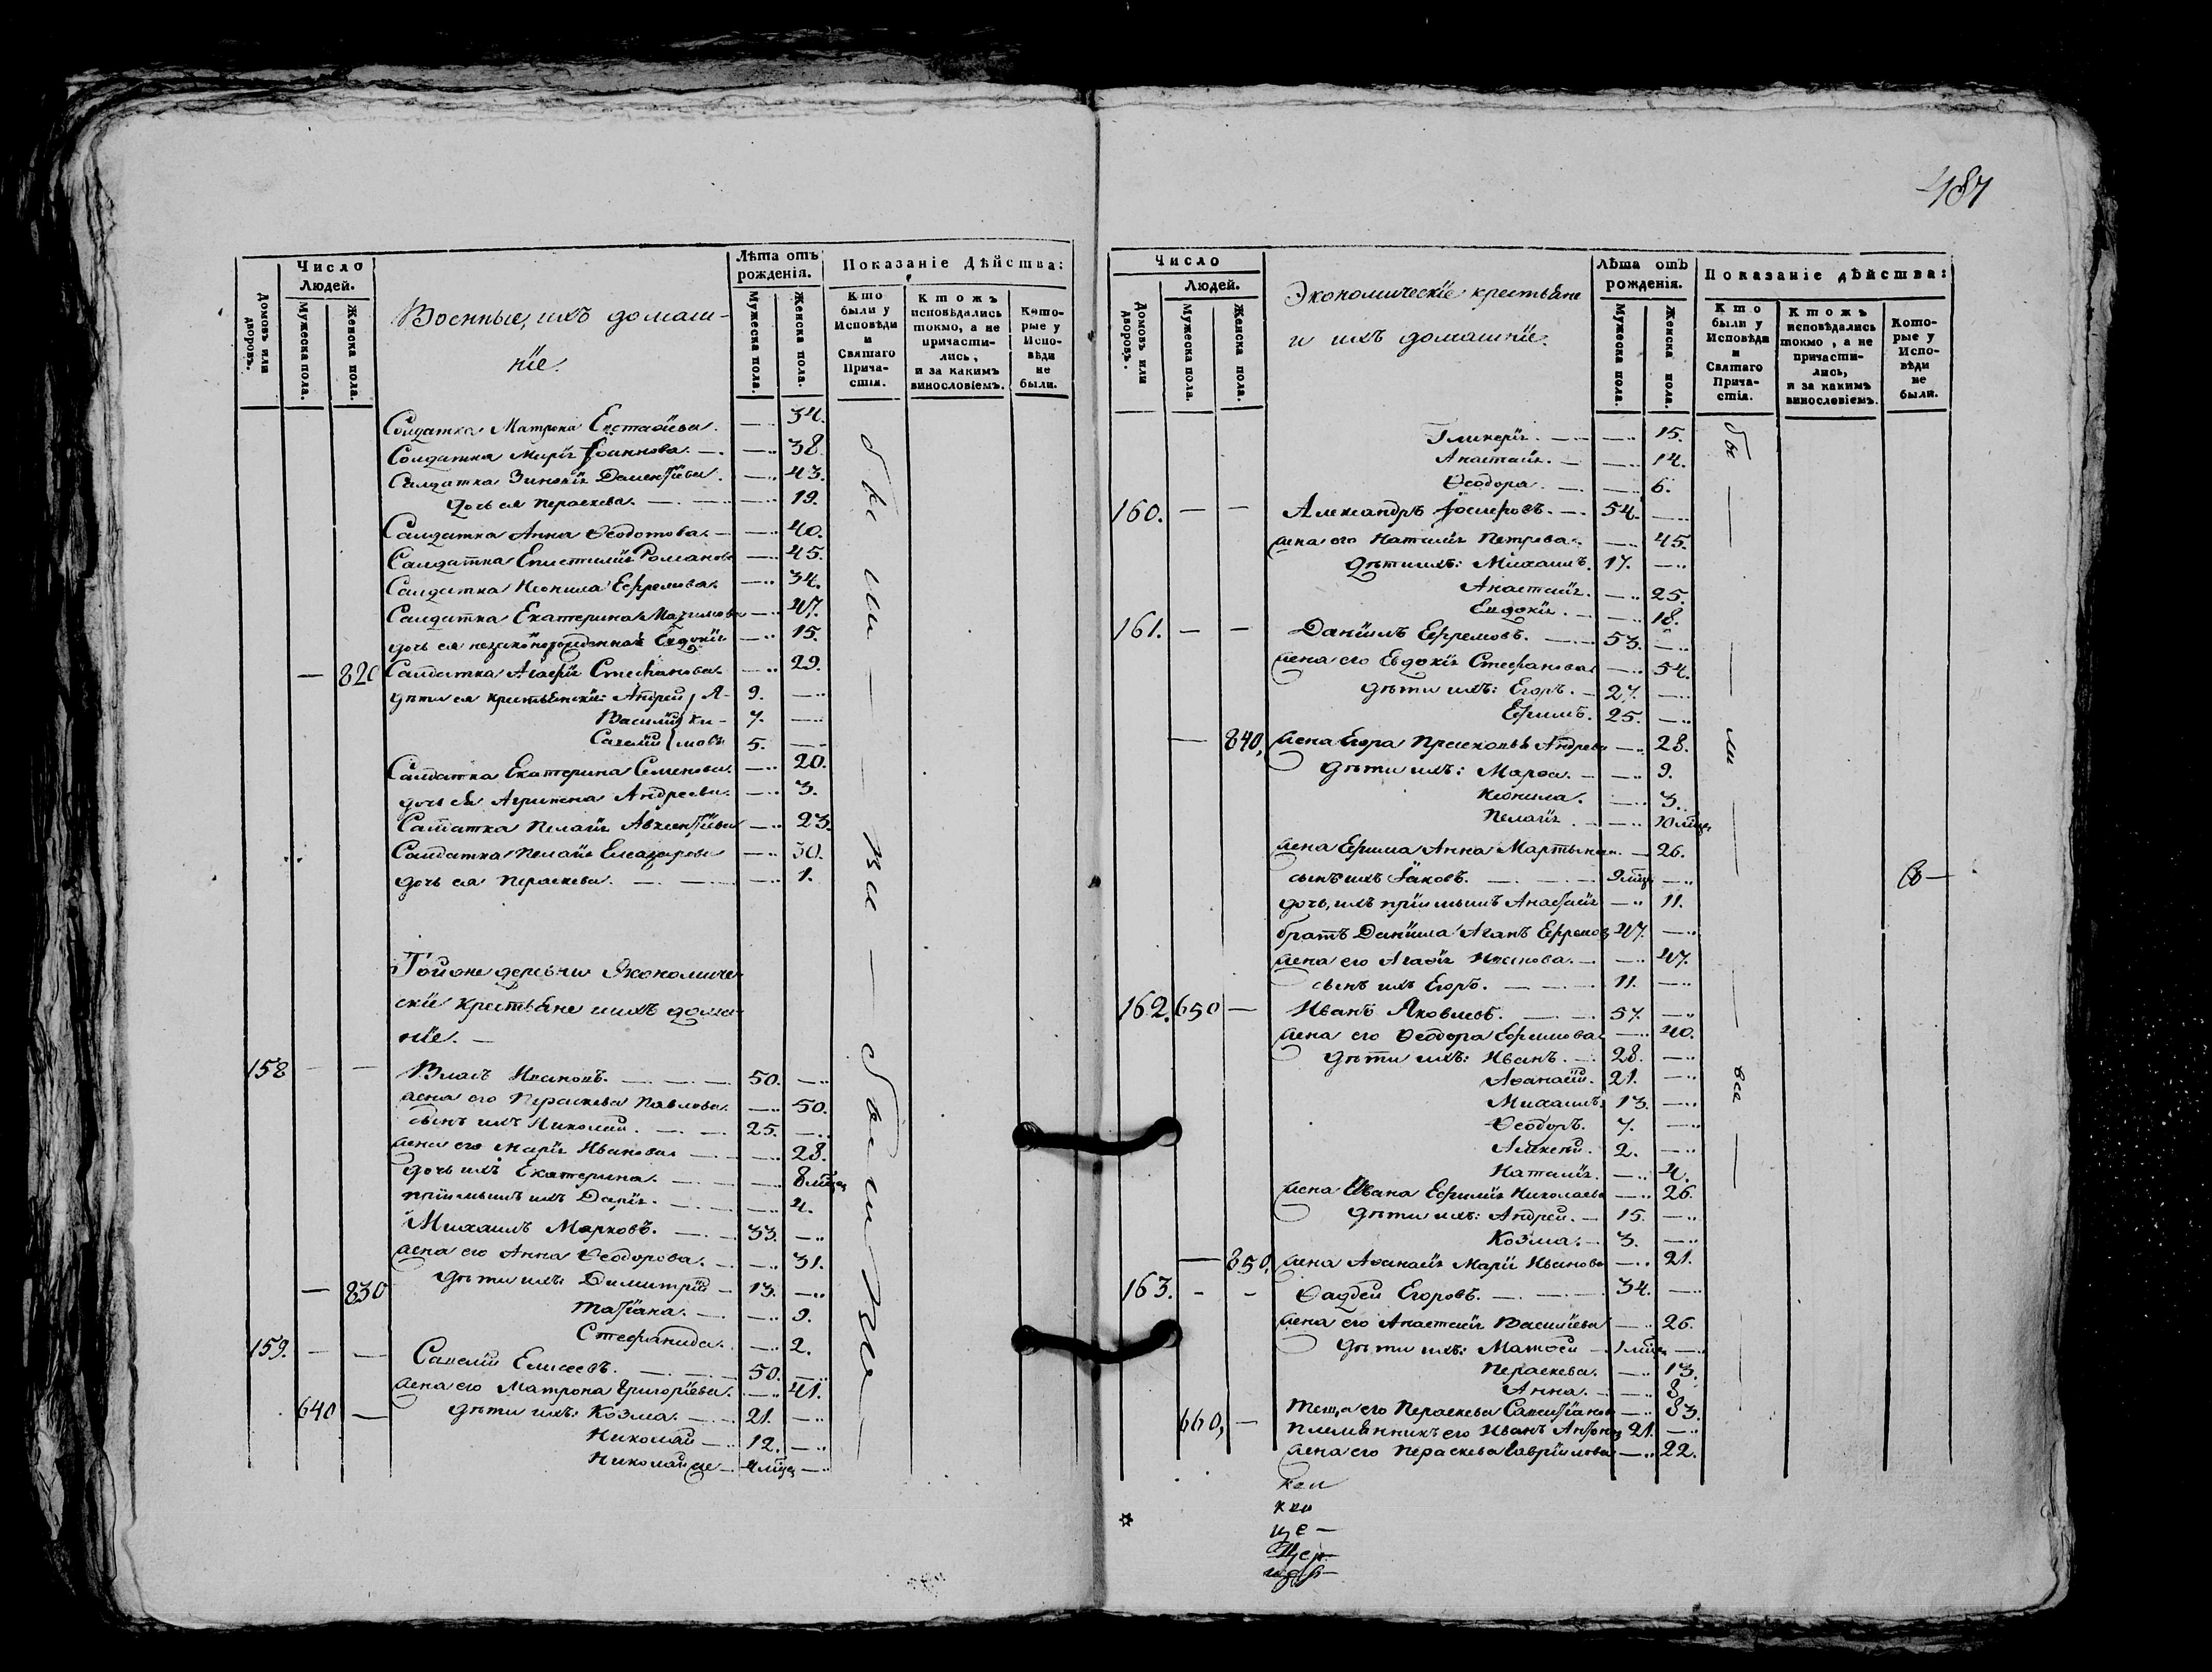 487
Число
Людей.
Домовъ или дворовъ.
Мужеска пола.
Женска пола.
Военные, ихъ домаш-
ніе.
Лѣта отъ рожденія.
Мужеска пола.
Женска пола.
Показаніе Дѣйства:
Кто были у Исповѣди и Святаго Прича-стія.
Ктожъ исповѣдались токмо, а не причасти-лись, и за какимъ винословіемъ.
Кото-рые у Испо-вѣди не были.
Солдатка Матрона — 34.
Солдатка Марія Іоаннова. — 38.
Солдатка Зиновія — 43.
дочь ея Параскева. — 19.
Солдатка Анна Ѳеодотова. — 40.
Солдатка Епистимія Романова — 45.
Солдатка Неонила Ефремова. — 34.
Солдатка Екатерина Маѯимова — 47.
дочь ея незаконорожденная Евдокія — 15.
— 820 Солдатка Агафія Стефанова. — 29.
дѣти ея крестьянскіе: Андрей / Я- 9. —
Василій / ки- 7. —
Савелій / мовы 5. —
Солдатка Екатерина Семенова. — 20.
дочь ея Агрипена Андреева. — 3.
Солдатка Пелагія Авксентіева — 23.
Солдатка Пелагія Елеазарова — 30.
дочь ея Параскева. — 1.
Тойже деревни Экономиче-
скіе крестьяне и ихъ домаш-
ніе. —
158 — — Власъ Ивановъ. — 50. —
жена его Параскева Павлова. — 50.
сынъ ихъ Николай. — 25. —
жена его Марія Иванова — 28.
дочь ихъ Екатерина. — 8 мѣсц
пріимышъ ихъ Дарія. — 4.
Михаилъ Марковъ. — 33. —
жена его Анна Ѳеодорова. — 31.
— 830 дѣти ихъ: Димитрій — 13. —
Татіана. — 9.
Стефанида. — 2.
159. — — Савелій Елисеевъ. — 50. —
жена его Матрона Григоріева. — 41.
640 — дѣти ихъ: Козма. — 21. —
Николай — 12. —
Николай же — 4 мѣсц —
были — всѣ — были всѣ —
Число
Людей.
Домовъ или дворовъ.
Мужеска пола.
Женска пола.
Экономическіе крестьяне
и ихъ домашніе.
Лѣта отъ рожденія.
Мужеска пола.
Женска пола.
Показаніе дѣйства:
Кто были у Исповѣди и Святаго Прича-стія.
Ктожъ исповѣдались токмо, а не причасти-лись, и за какимъ винословіемъ.
Кото-рые у Испо-вѣди не были.
Гликерія. — 15.
Анастасія. — 14.
Ѳеодора. — 6.
160. — — Александръ Іосифовъ. — 54. —
жена его Наталія Петрова. — 45.
дѣти ихъ: Михаилъ. 17. —
Анастасія. — 25.
Евдокія. — 18.
161. — — Даніилъ Ефремовъ. — 53. —
жена его Евдокія Стефанова — 54.
дѣти ихъ: Егоръ. — 27. —
Ефимъ. 25. —
— 840, жена Егора Прасковья Андреева — 28.
дѣти ихъ: Марѳа. — 9.
Неонила. — 3.
Пелагія. — 10 мѣсц
жена Ефима Анна Мартынова. — 26.
сынъ ихъ Іаковъ. — 9 мѣсц —
дочь, ихъ пріимышъ Анастасія — 11.
братъ Даніила Агапъ Ефремовъ 47. —
жена его Агафія Иванова. — 47.
сынъ ихъ Егоръ. — 11. —
162. 650 — Иванъ Яковлевъ. — 57. —
жена его Ѳеодора Ефимова — 40.
дѣти ихъ: Иванъ. — 28. —
Аѳанасій. 21. —
Михаилъ. 13. —
Ѳеодоръ. 7. —
Алексѣй. 2. —
Наталія. — 4.
жена Ивана Ефимія Николаева — 26.
дѣти ихъ: Андрей. — 15. —
Козма. — 3. —
— 850, жена Аѳанасія Марія Иванова — 21.
163. — — Ѳаддей Егоровъ. — 34. —
жена его Анастасія Василіева — 26.
дѣти ихъ: Матѳей — 1 мѣсц —
Параскева. — 13.
Анна. — 8
теща его Параскева — 83.
660, — племянникъ его Иванъ 21. —
жена его Параскева Гавріилова — 22.
бы — ли — всѣ —
це —